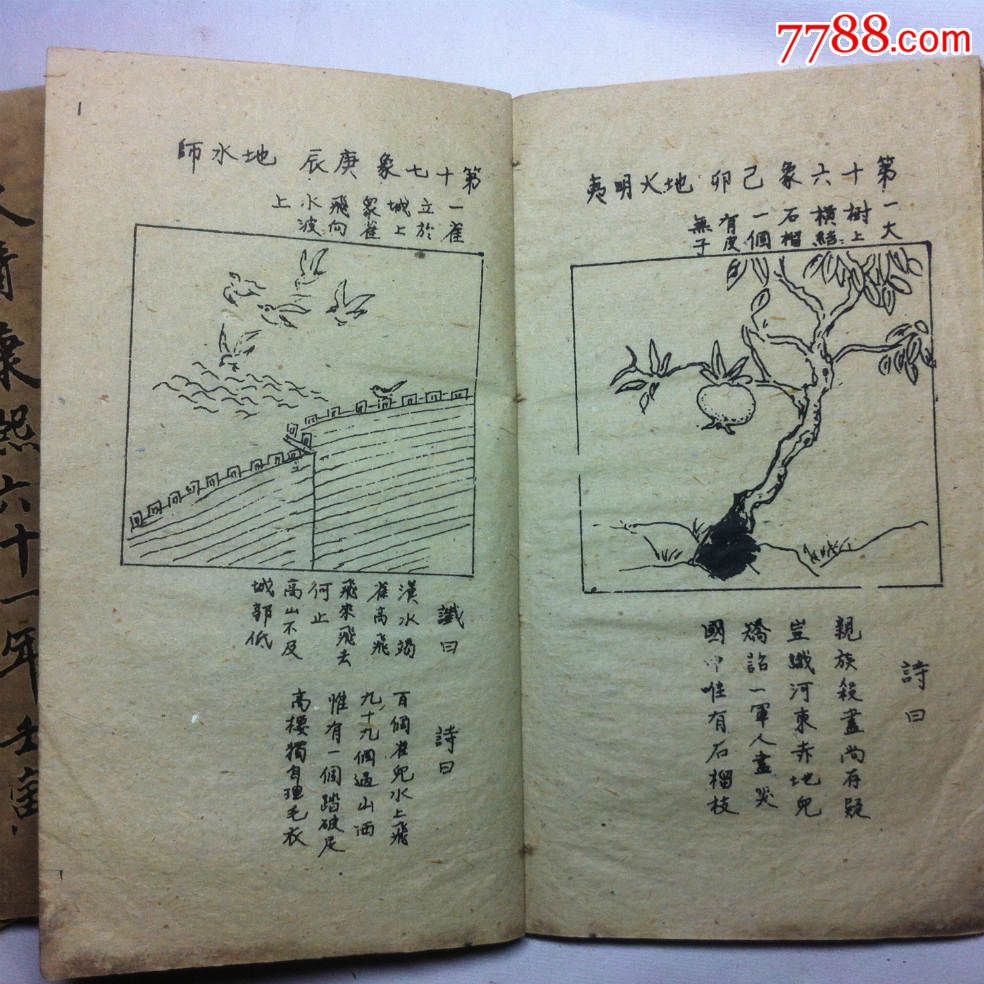 7788.com
第十六象己卯地火明夷
一大
樹上
橫結
石榴
一個
有皮
無子
詩曰
親族殺盡尚存疑
豈識河東赤地兒
矯詔一軍人盡哭
國中唯有石榴枝
第十七象庚辰地水師
一雀
立於
城上
眾雀
飛向
水波
上
讖曰
漢水竭
雀高飛
飛來飛去
何止
高山不及
城郭低
詩曰
百個雀兒水上飛
九十九個過山西
惟有一個踏破足
高樓獨自理毛衣
清康熙六十一年壬寅